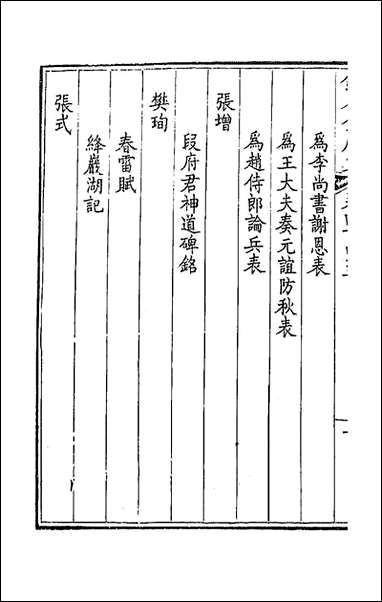 爲李尚書謝恩表
爲王大夫奏元誼防秋表
爲趙侍郎論兵表
張增
段府君神道碑銘
樊珣
春雷賦
絳巖湖記
張式